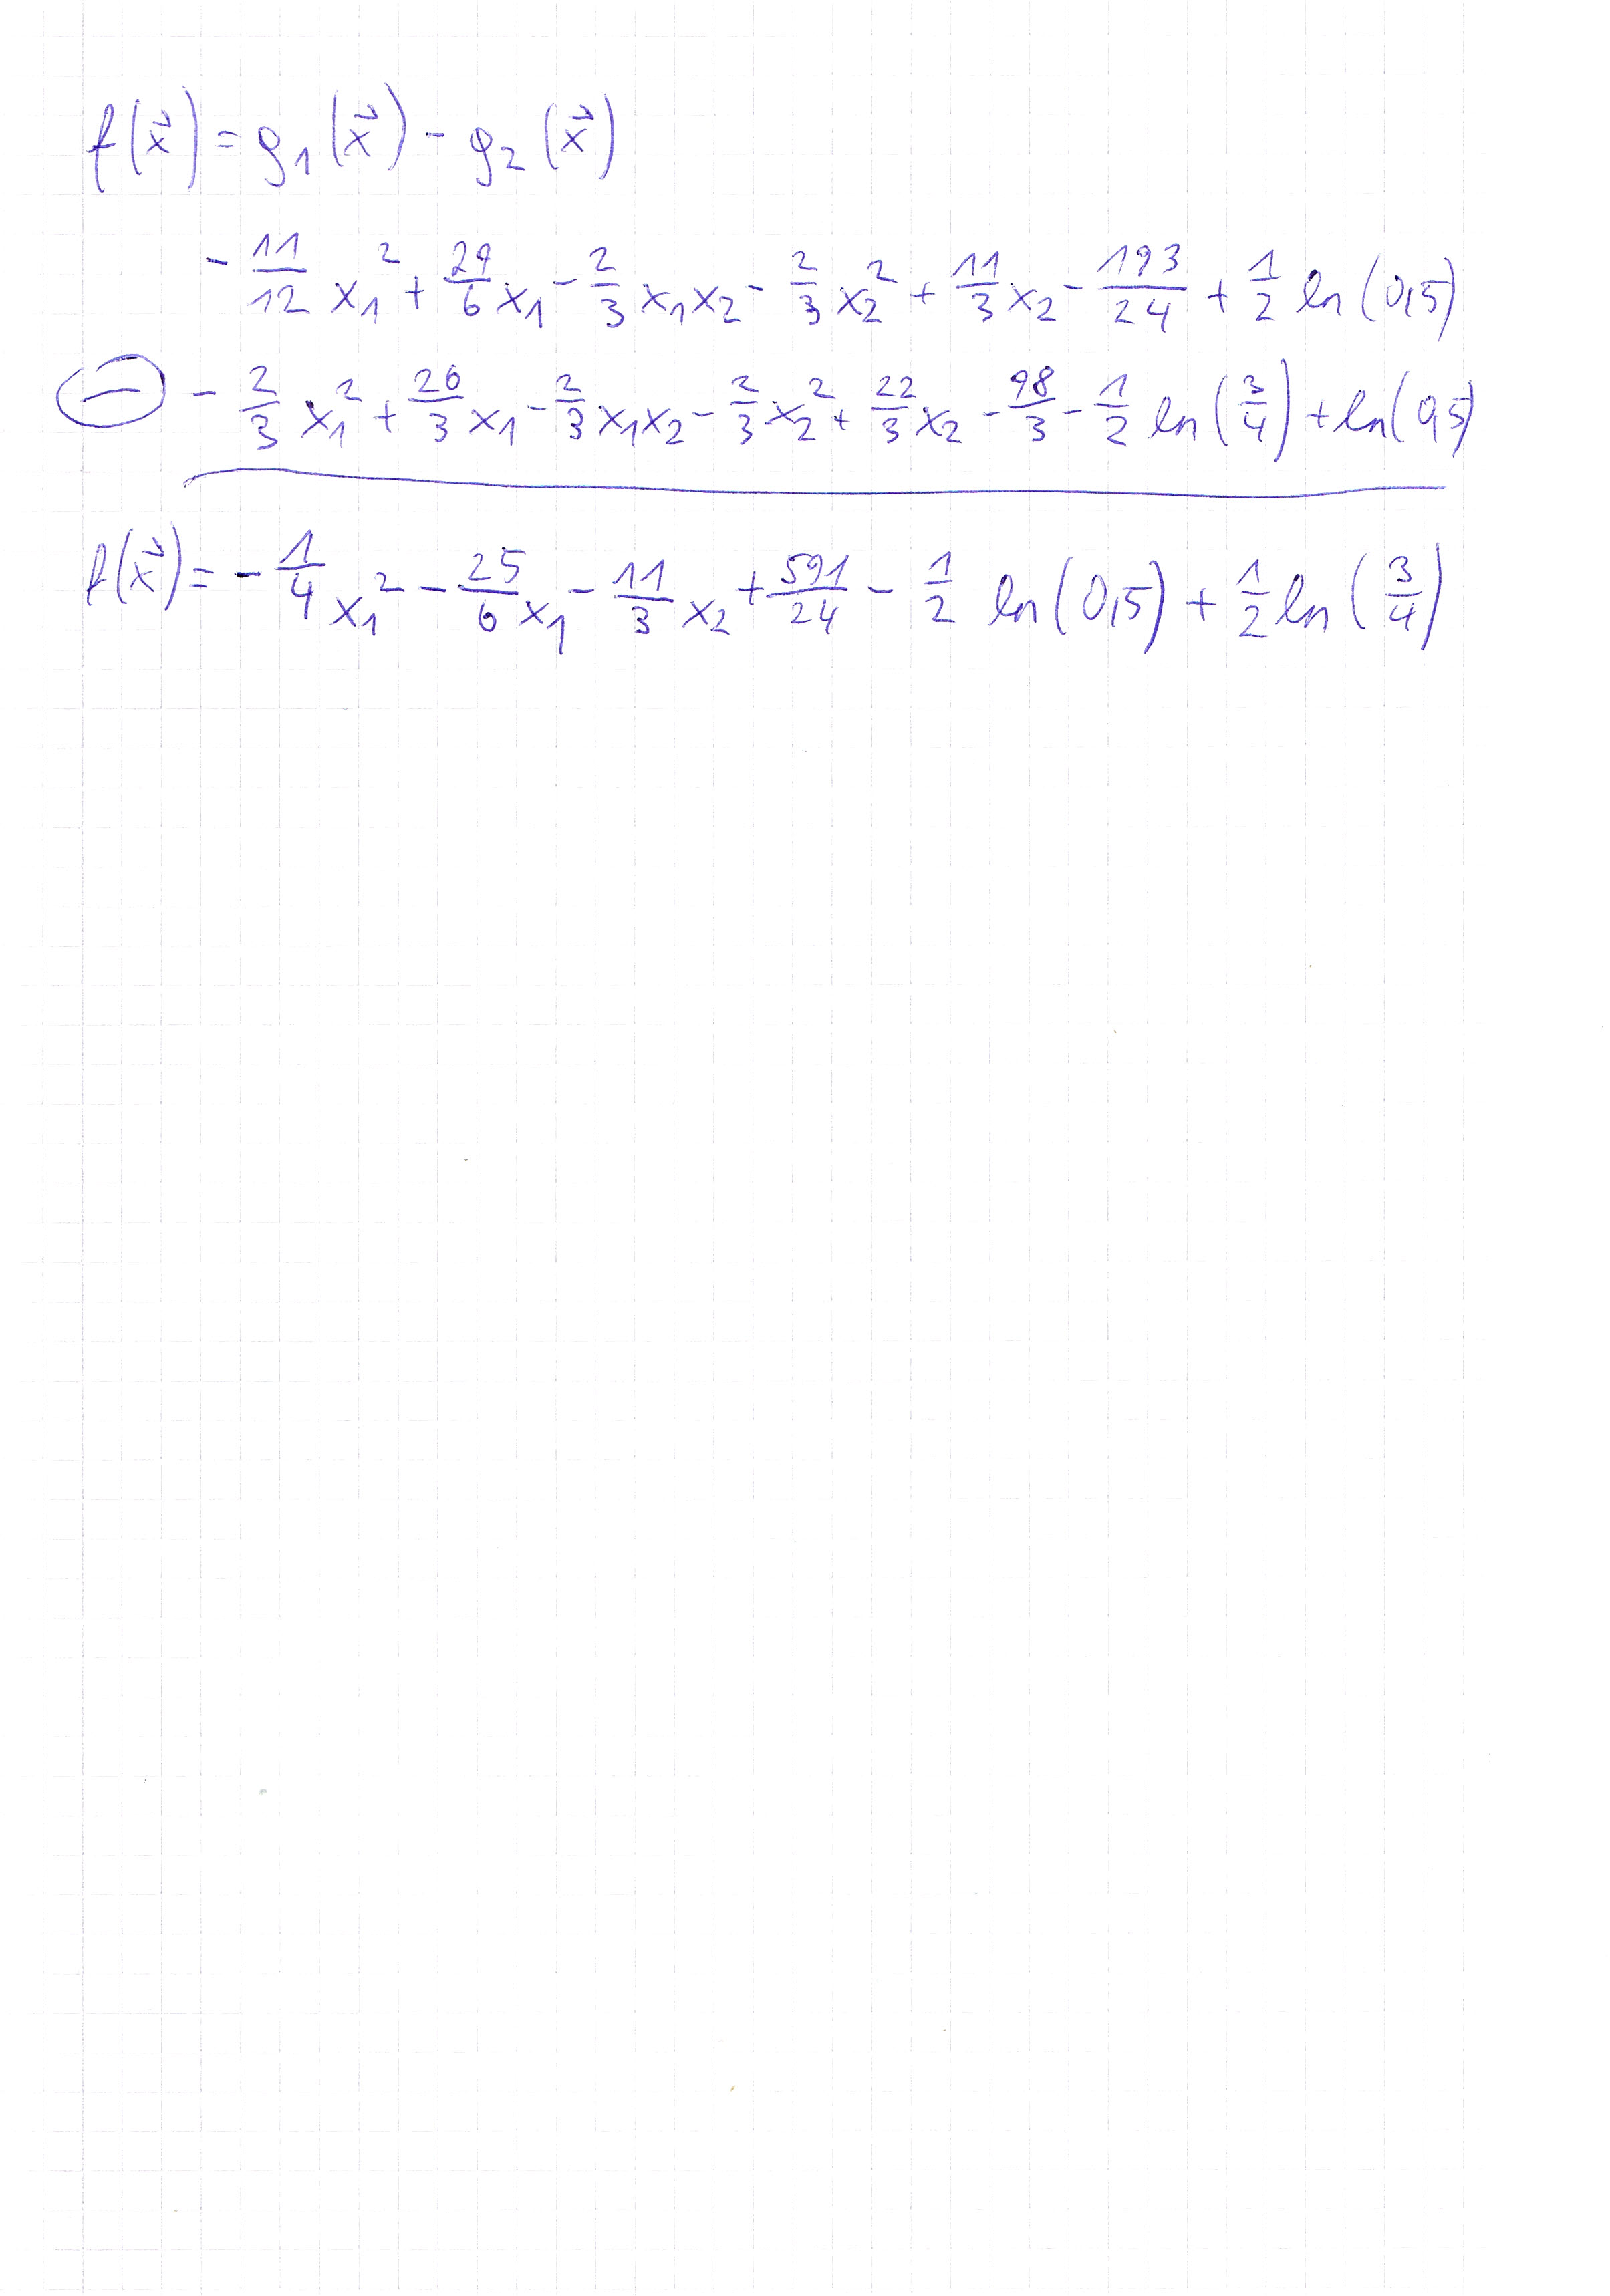 f(x⃗) = g₁(x⃗) - g₂(x⃗)
- 11/12 x₁² + 29/6 x₁ - 2/3 x₁x₂ - 2/3 x₂² + 11/3 x₂ - 193/24 + 1/2 ln(0,5)
⊖ - 2/3 x₁² + 26/3 x₁ - 2/3 x₁x₂ - 2/3 x₂² + 22/3 x₂ - 98/3 - 1/2 ln(3/4) + ln(0,5)
f(x⃗) = - 1/4 x₁² - 25/6 x₁ - 11/3 x₂ + 591/24 - 1/2 ln(0,5) + 1/2 ln(3/4)